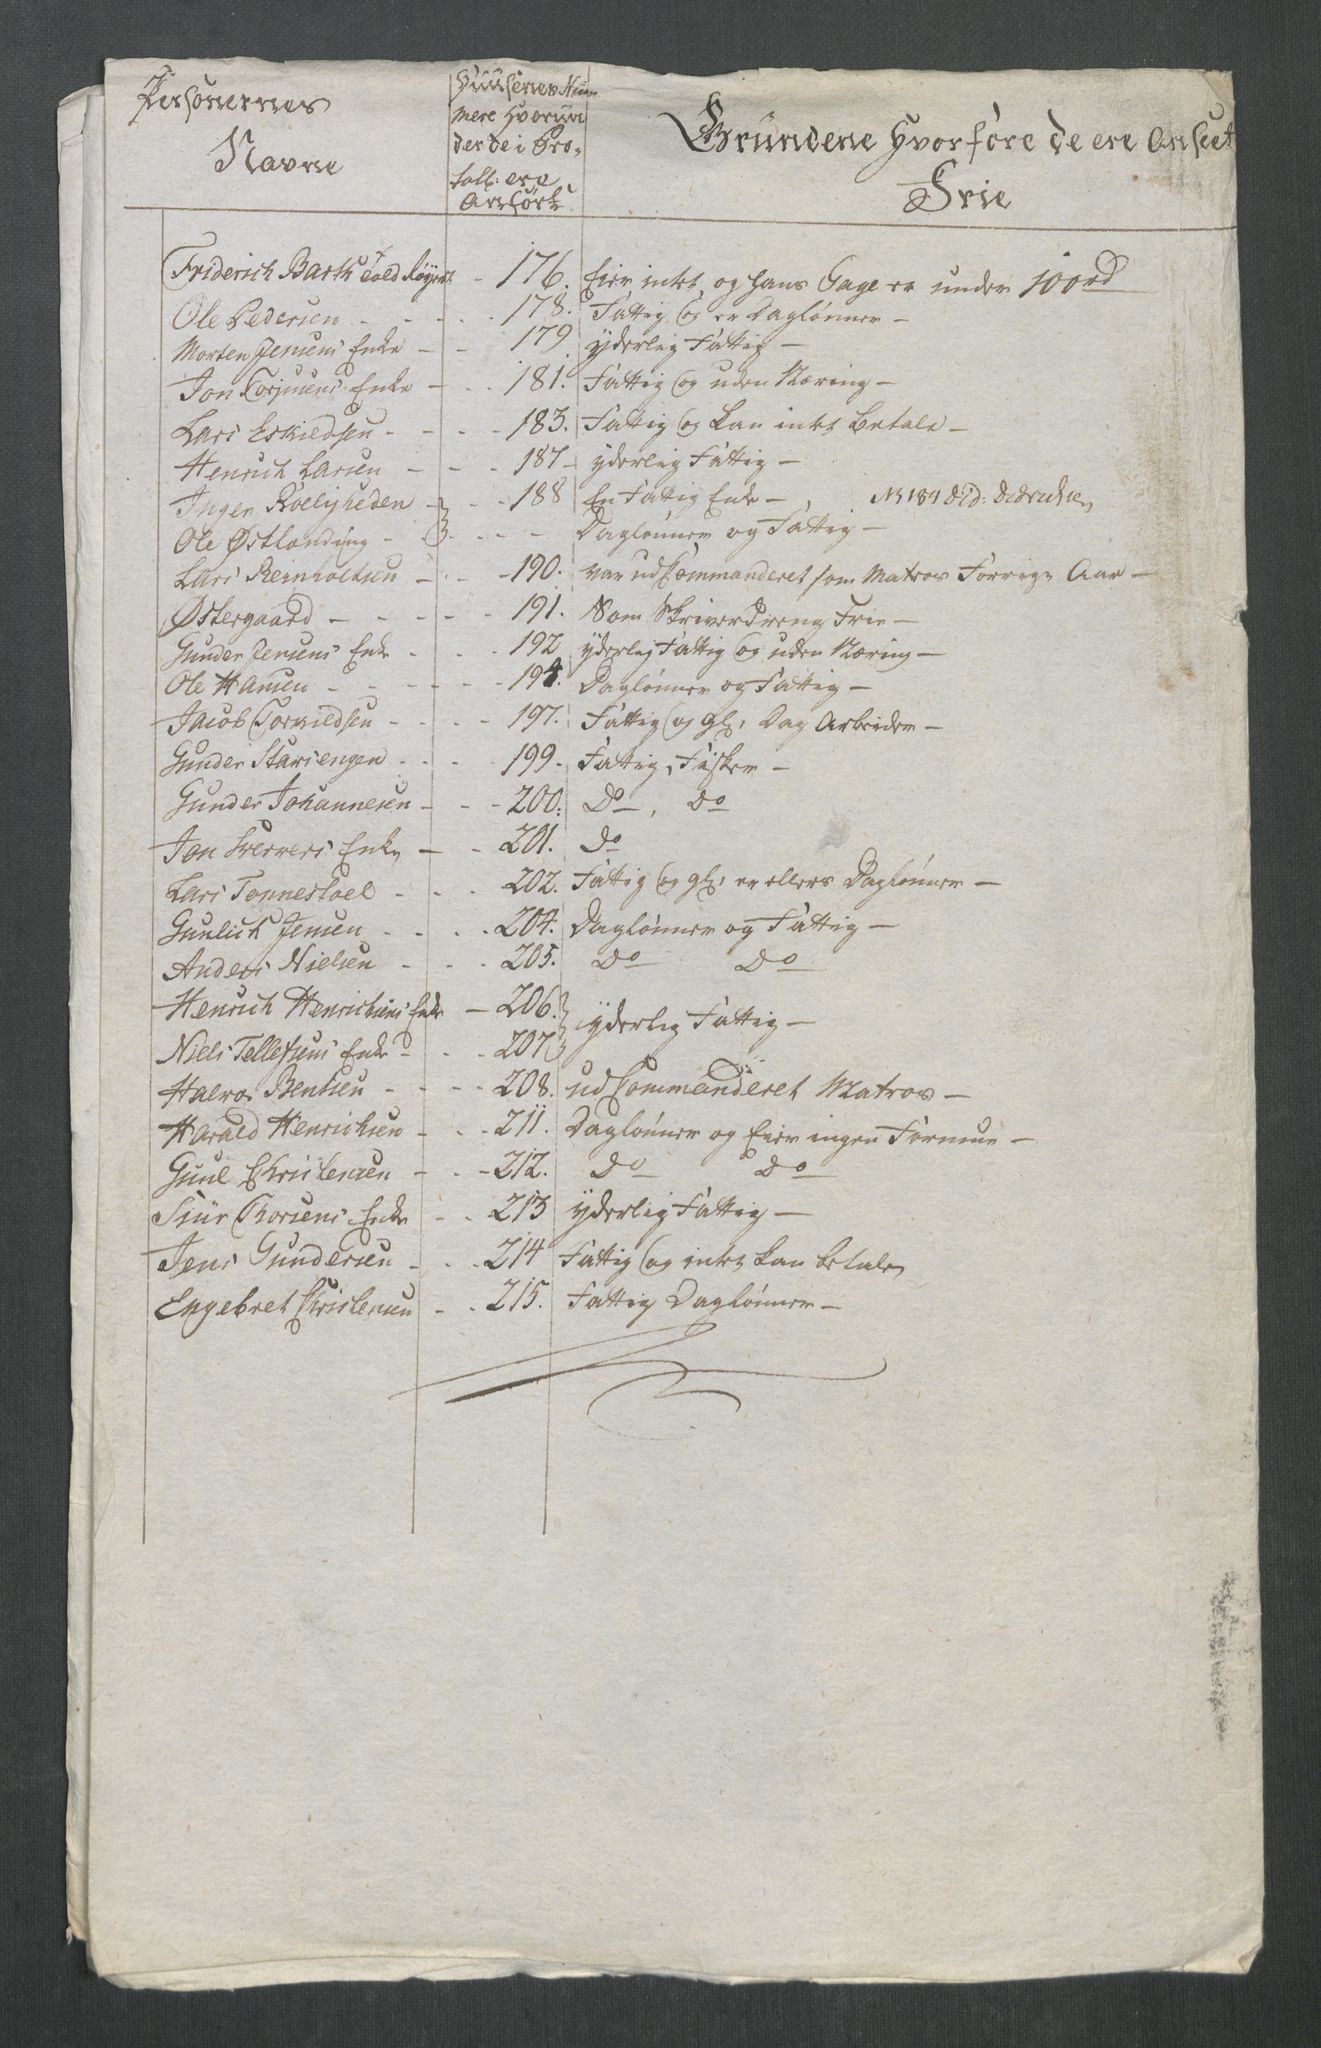 Personernes Navne | Huusenes Nummere hvorunder de i Protoll: ere Anført | Grundene hvorfore de ere Anseet Frie
Friderich Barth - 176. Eier intet og hans Gage er under 100 rd
Ole Pedersen - - - 178. Fattig og er Daglønner -
Morten Jensens Enke - - 179 yderlig Fattig -
Jon Torjusens Enke - - 181. Fattig og uden Næring -
Lars Eskildsen - - - 183. Fattig og kan intet betale -
Henrich Larsen - - - 187 - yderlig Fattig -
Inger Roeligheden - - 188 En Fattig Enke - , No 189 Did: Didrichsen
Ole Østlanding - - - - Daglønner og Fattig -
Lars Bernholtsen - - - 190. var udCommanderet som Matros Forrige Aar -
Østergaard - - - - 191. Som Skriverdreng Frie -
Gunder Jensens Enke - - - 192 yderlig Fattig og uden Næring -
Ole Hansen - - - - - 194. Daglønner og Fattig -
Jacob Torkildsen - - - - 197. Fattig og gl: Dag Arbeider -
Gunder Starsengen - - - 199. Fattig, Fisker -
Gunder Johannesen - - - 200. Do , Do
Jon Enke - - 201. Do
Lars Tonnestoel - - - 202. Fattig og gl: er ellers Daglønner -
Gunlich Jensen - - - - 204. Daglønner og Fattig -
Anders Nielsen - - - 205. Do Do
Henrich Henrichsens Enke - 206. yderlig Fattig -
Niels Tellefsens Enke - - - 207
Halvor Bentsen - - - - 208. udCommanderet Matros -
Harald Henrichsen - - - 211. Daglønner og Eier ingen Formue -
Guul Christensen - - - 212. Do Do
Siur Thorsens Enke - - 213 yderlig Fattig -
Jens Gundersen - - - 214 Fattig og intet kan betale
Engebret Christensen - - 215. Fattig Daglønner -